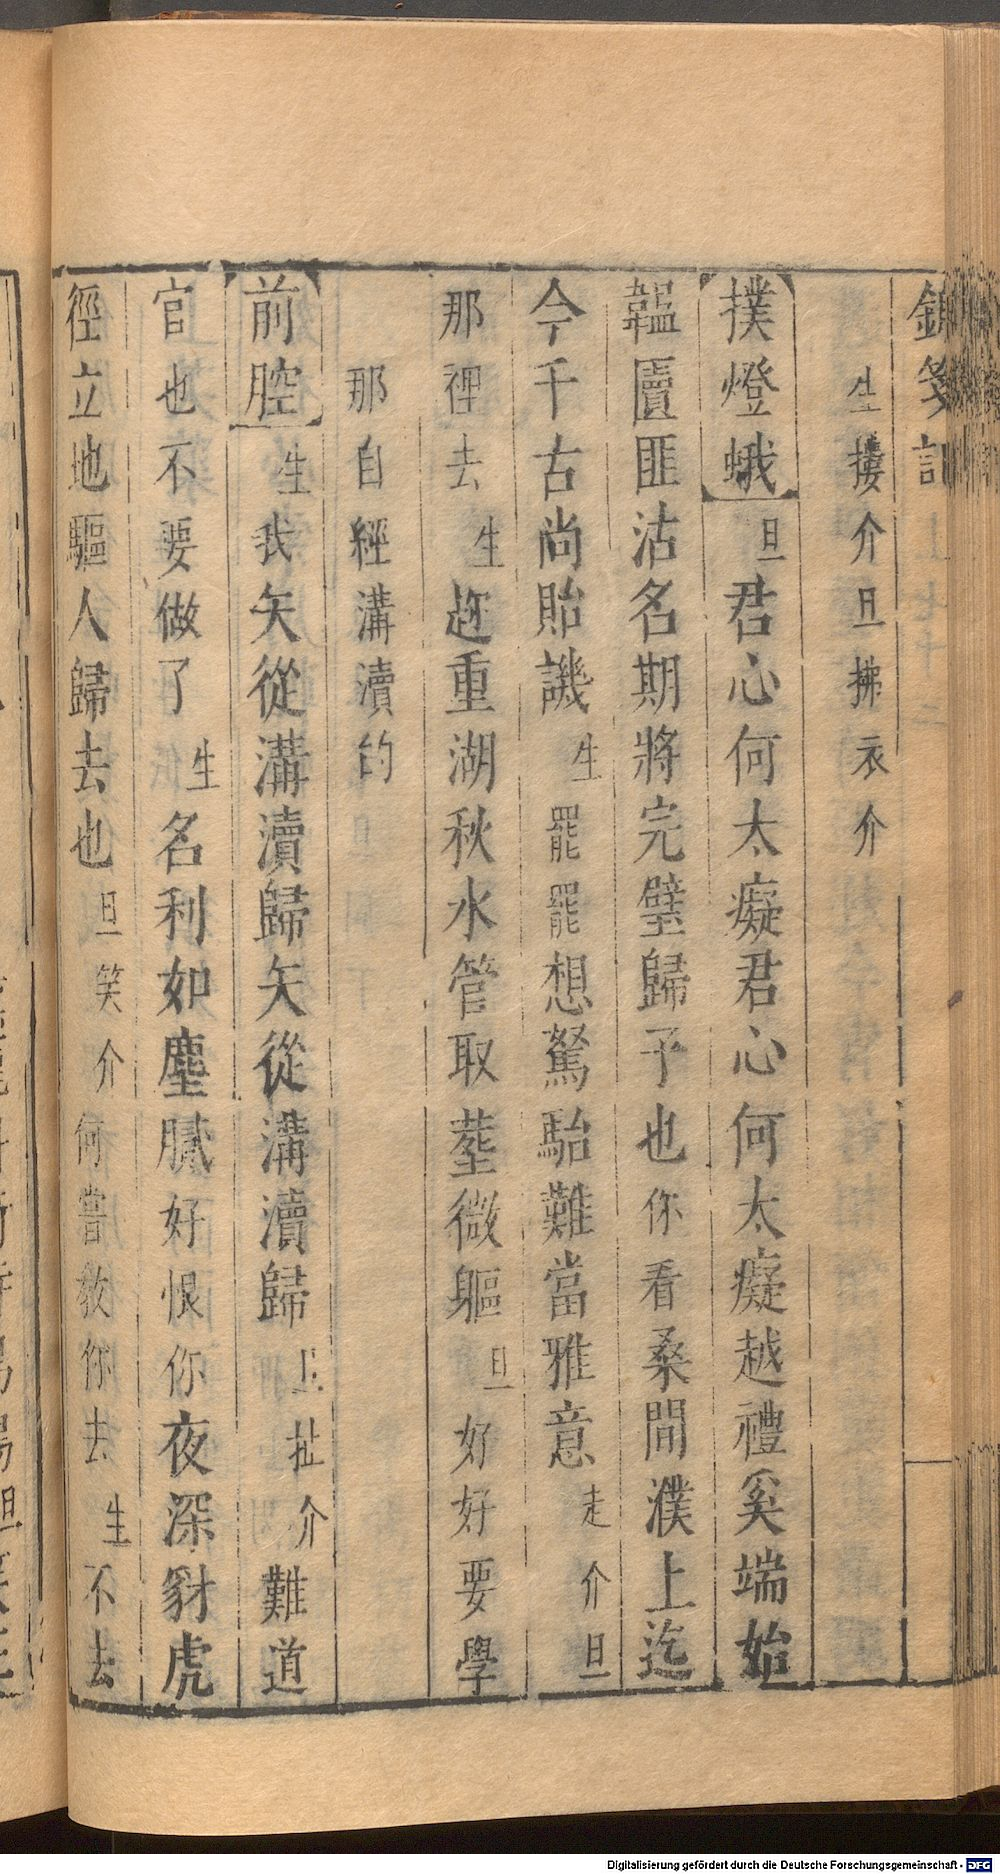 錦箋記
生摟介旦拂衣介
撲燈蛾旦君心何太癡君心何太癡越禮奚端始
韞匵匪沽名期將完璧歸予也你看桑間濮上迄
今千古尚貽譏生罷罷想駑駘難當雅意走介旦
那裡去生赴重湖秋水管取塟微軀旦好好要學
那自經溝瀆的
前腔生我矢從溝瀆歸矢從溝瀆歸上扯介難道
官也不要做了生名利如塵膩好恨你夜深豺虎
徑立地驅人歸去也旦笑介何嘗教你去生不去
Digitalisierung gefördert durch die Deutsche Forschungsgemeinschaft - DFG